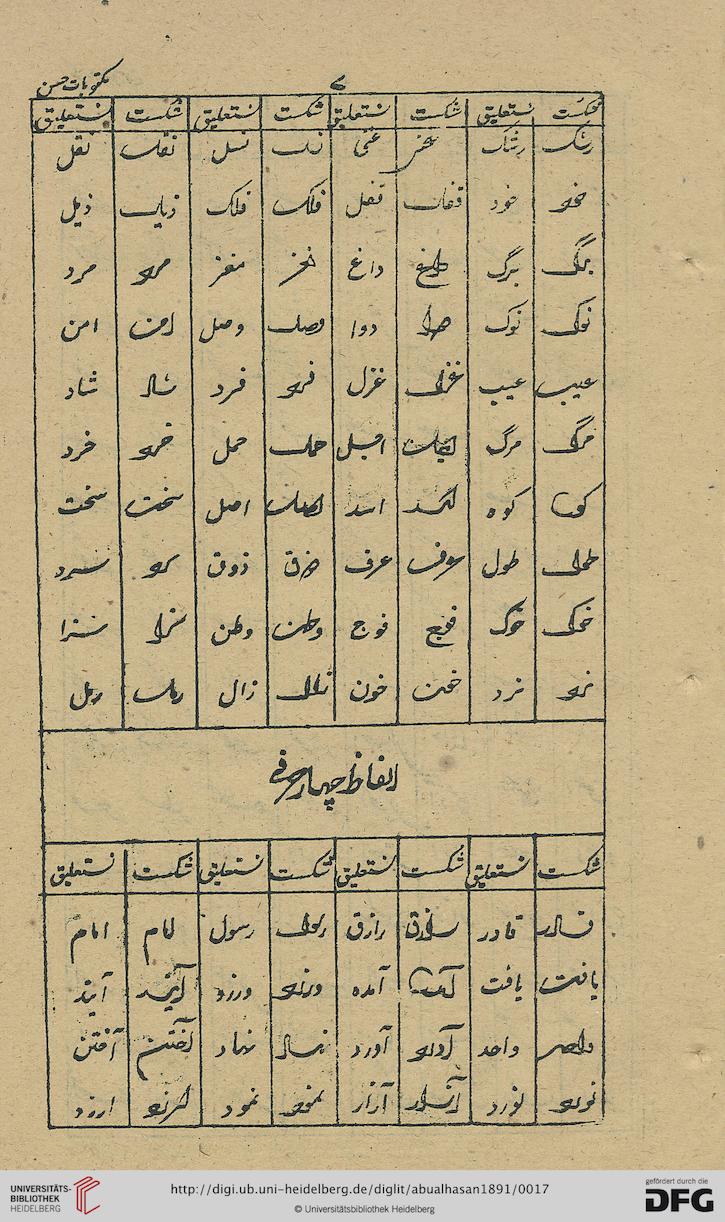 مکتوبات حسن
۷
شکست نستعلیق شکست نستعلیق شکست نستعلیق شکست نستعلیق
رشک رشک غنی نسل نسل نقل نقل
خود خود قفل قفل فلک فلک ذیل ذیل
برگ برگ داغ داغ مغز مغز مرد مرد
نوک نوک دوا دوا وصل وصل امن امن
عیب عیب غزل غزل فرد فرد شاد شاد
مرگ مرگ اصیل حمل حمل خرد خرد
کوه کوه اسد اسد اصل اصل سخت سخت
طول طول عرف عرف ذوق ذوق سرد سرد
خوک خوک فوج فوج وطن وطن سزا سزا
نرد نرد خون خون زال زال ریل ریل
الفاظ چہار حرفی
شکست نستعلیق شکست نستعلیق شکست نستعلیق شکست نستعلیق
قادر قادر رازق رازق رسول رسول امام امام
یافت یافت آمده آمده ورزد ورزد آیند آیند
واحد واحد آورد آورد نہاد نہاد آختن آختن
نورد نورد آزار آزار نمود نمود ارزد ارزد
UNIVERSITÄTS-
BIBLIOTHEK
HEIDELBERG
http://digi.ub.uni-heidelberg.de/diglit/abualhasan1891/0017
© Universitätsbibliothek Heidelberg
gefördert durch die
DFG